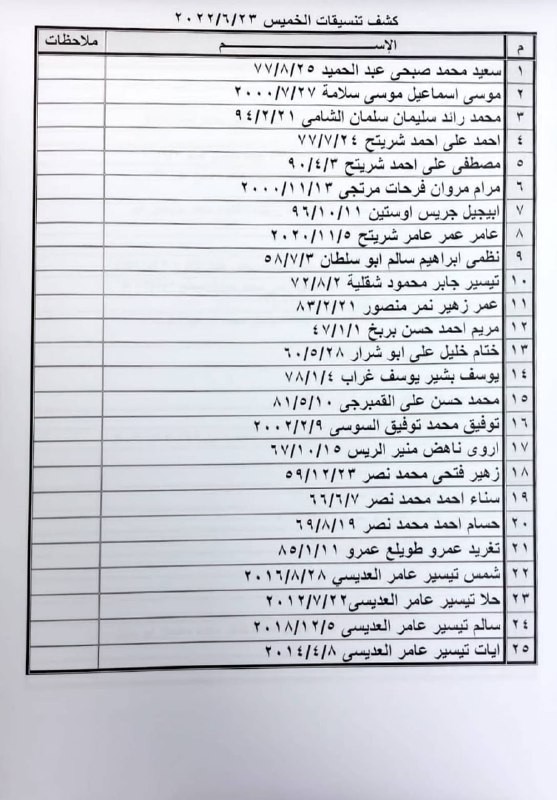 كشف تنسيقات الخميس ٢٠٢٢/٦/٢٣
م الإســــــــم ملاحظات
١ سعيد محمد صبحى عبد الحميد ٧٧/٨/٢٥
٢ موسى اسماعيل موسى سلامة ٢٠٠٠/٧/٢٧
٣ محمد رائد سليمان سلمان الشامى ٩٤/٢/٢١
٤ احمد على احمد شريتح ٧٧/٧/٢٤
٥ مصطفى على احمد شريتح ٩٠/٤/٣
٦ مرام مروان فرحات مرتجى ٢٠٠٠/١١/١٣
٧ ابيجيل جريس اوستين ٩٦/١٠/١١
٨ عامر عمر عامر شريتح ٢٠٢٠/١١/٥
٩ نظمى ابراهيم سالم ابو سلطان ٥٨/٧/٣
١٠ تيسير جابر محمود شقلية ٧٢/٨/٢
١١ عمر زهير نمر منصور ٨٣/٢/٢١
١٢ مريم احمد حسن بربخ ٤٧/١/١
١٣ ختام خليل على ابو شرار ٦٠/٥/٢٨
١٤ يوسف بشير يوسف غراب ٧٨/١/٤
١٥ محمد حسن على القمبرجى ٨١/٥/١٠
١٦ توفيق محمد توفيق السوسى ٢٠٠٢/٢/٩
١٧ اروى ناهض منير الريس ٦٧/١٠/١٥
١٨ زهير فتحى محمد نصر ٥٩/١٢/٢٣
١٩ سناء احمد محمد نصر ٦٦/٦/٧
٢٠ حسام احمد محمد نصر ٦٩/٨/١٩
٢١ تغريد عمرو طويلع عمرو ٨٥/١/١١
٢٢ شمس تيسير عامر العديسي ٢٠١٦/٨/٢٨
٢٣ حلا تيسير عامر العديسى٢٠١٢/٧/٢٢
٢٤ سالم تيسير عامر العديسى ٢٠١٨/١٢/٥
٢٥ ايات تيسير عامر العديسى ٢٠١٤/٤/٨